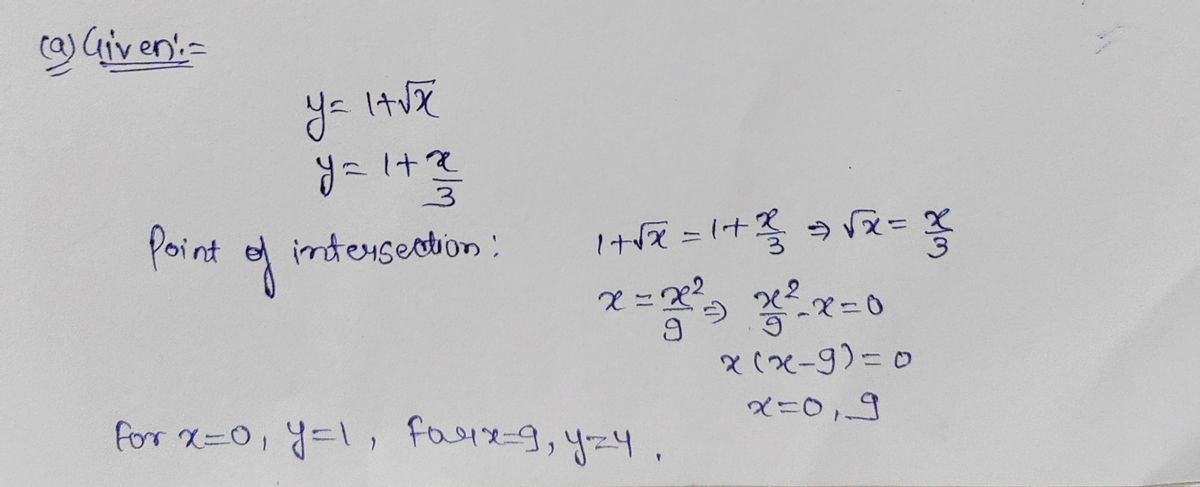 (a) Given:-
y = 1+√x
y = 1+ x/3
Point of intersection: 1+√x = 1+ x/3 ⇒ √x = x/3
x = x²/9 ⇒ x²/9 - x = 0
x (x-9) = 0
x=0, 9
for x=0, y=1, for x=9, y=4.